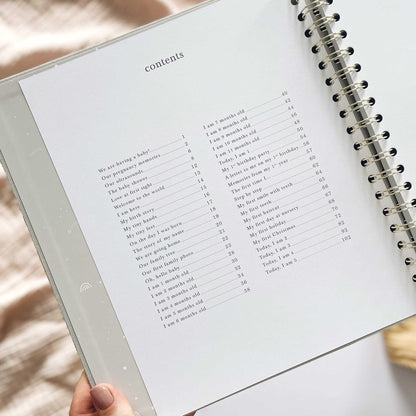 contents
We are having a baby! 1
Our pregnancy memories 2
Our ultrasounds 6
The baby shower
Love at first sight 12
Welcome to the world 13
I am here
My birth story
My tiny hands
My tiny feet
On the day I was born
The story of my name 20
We are going home
Our family tree
Our first family photo
Oh, hello baby
I am 1 month old
I am 2 months old
I am 3 months old
I am 4 months old
I am 5 months old 36
I am 6 months old 38
I am 7 months old 40
I am 8 months old 42
I am 9 months old 44
I am 10 months old 46
I am 11 months old 48
Today, I am 1
My 1st birthday party
A letter to me on my 1st birthday
Memories from my 1st year
The first time I
Step by step
My first smile with teeth
My first tooth
My first haircut
My first day at nursery
My first holiday
My first Christmas
Today, I am 2
Today, I am 3
Today, I am 4
Today, I am 5 102